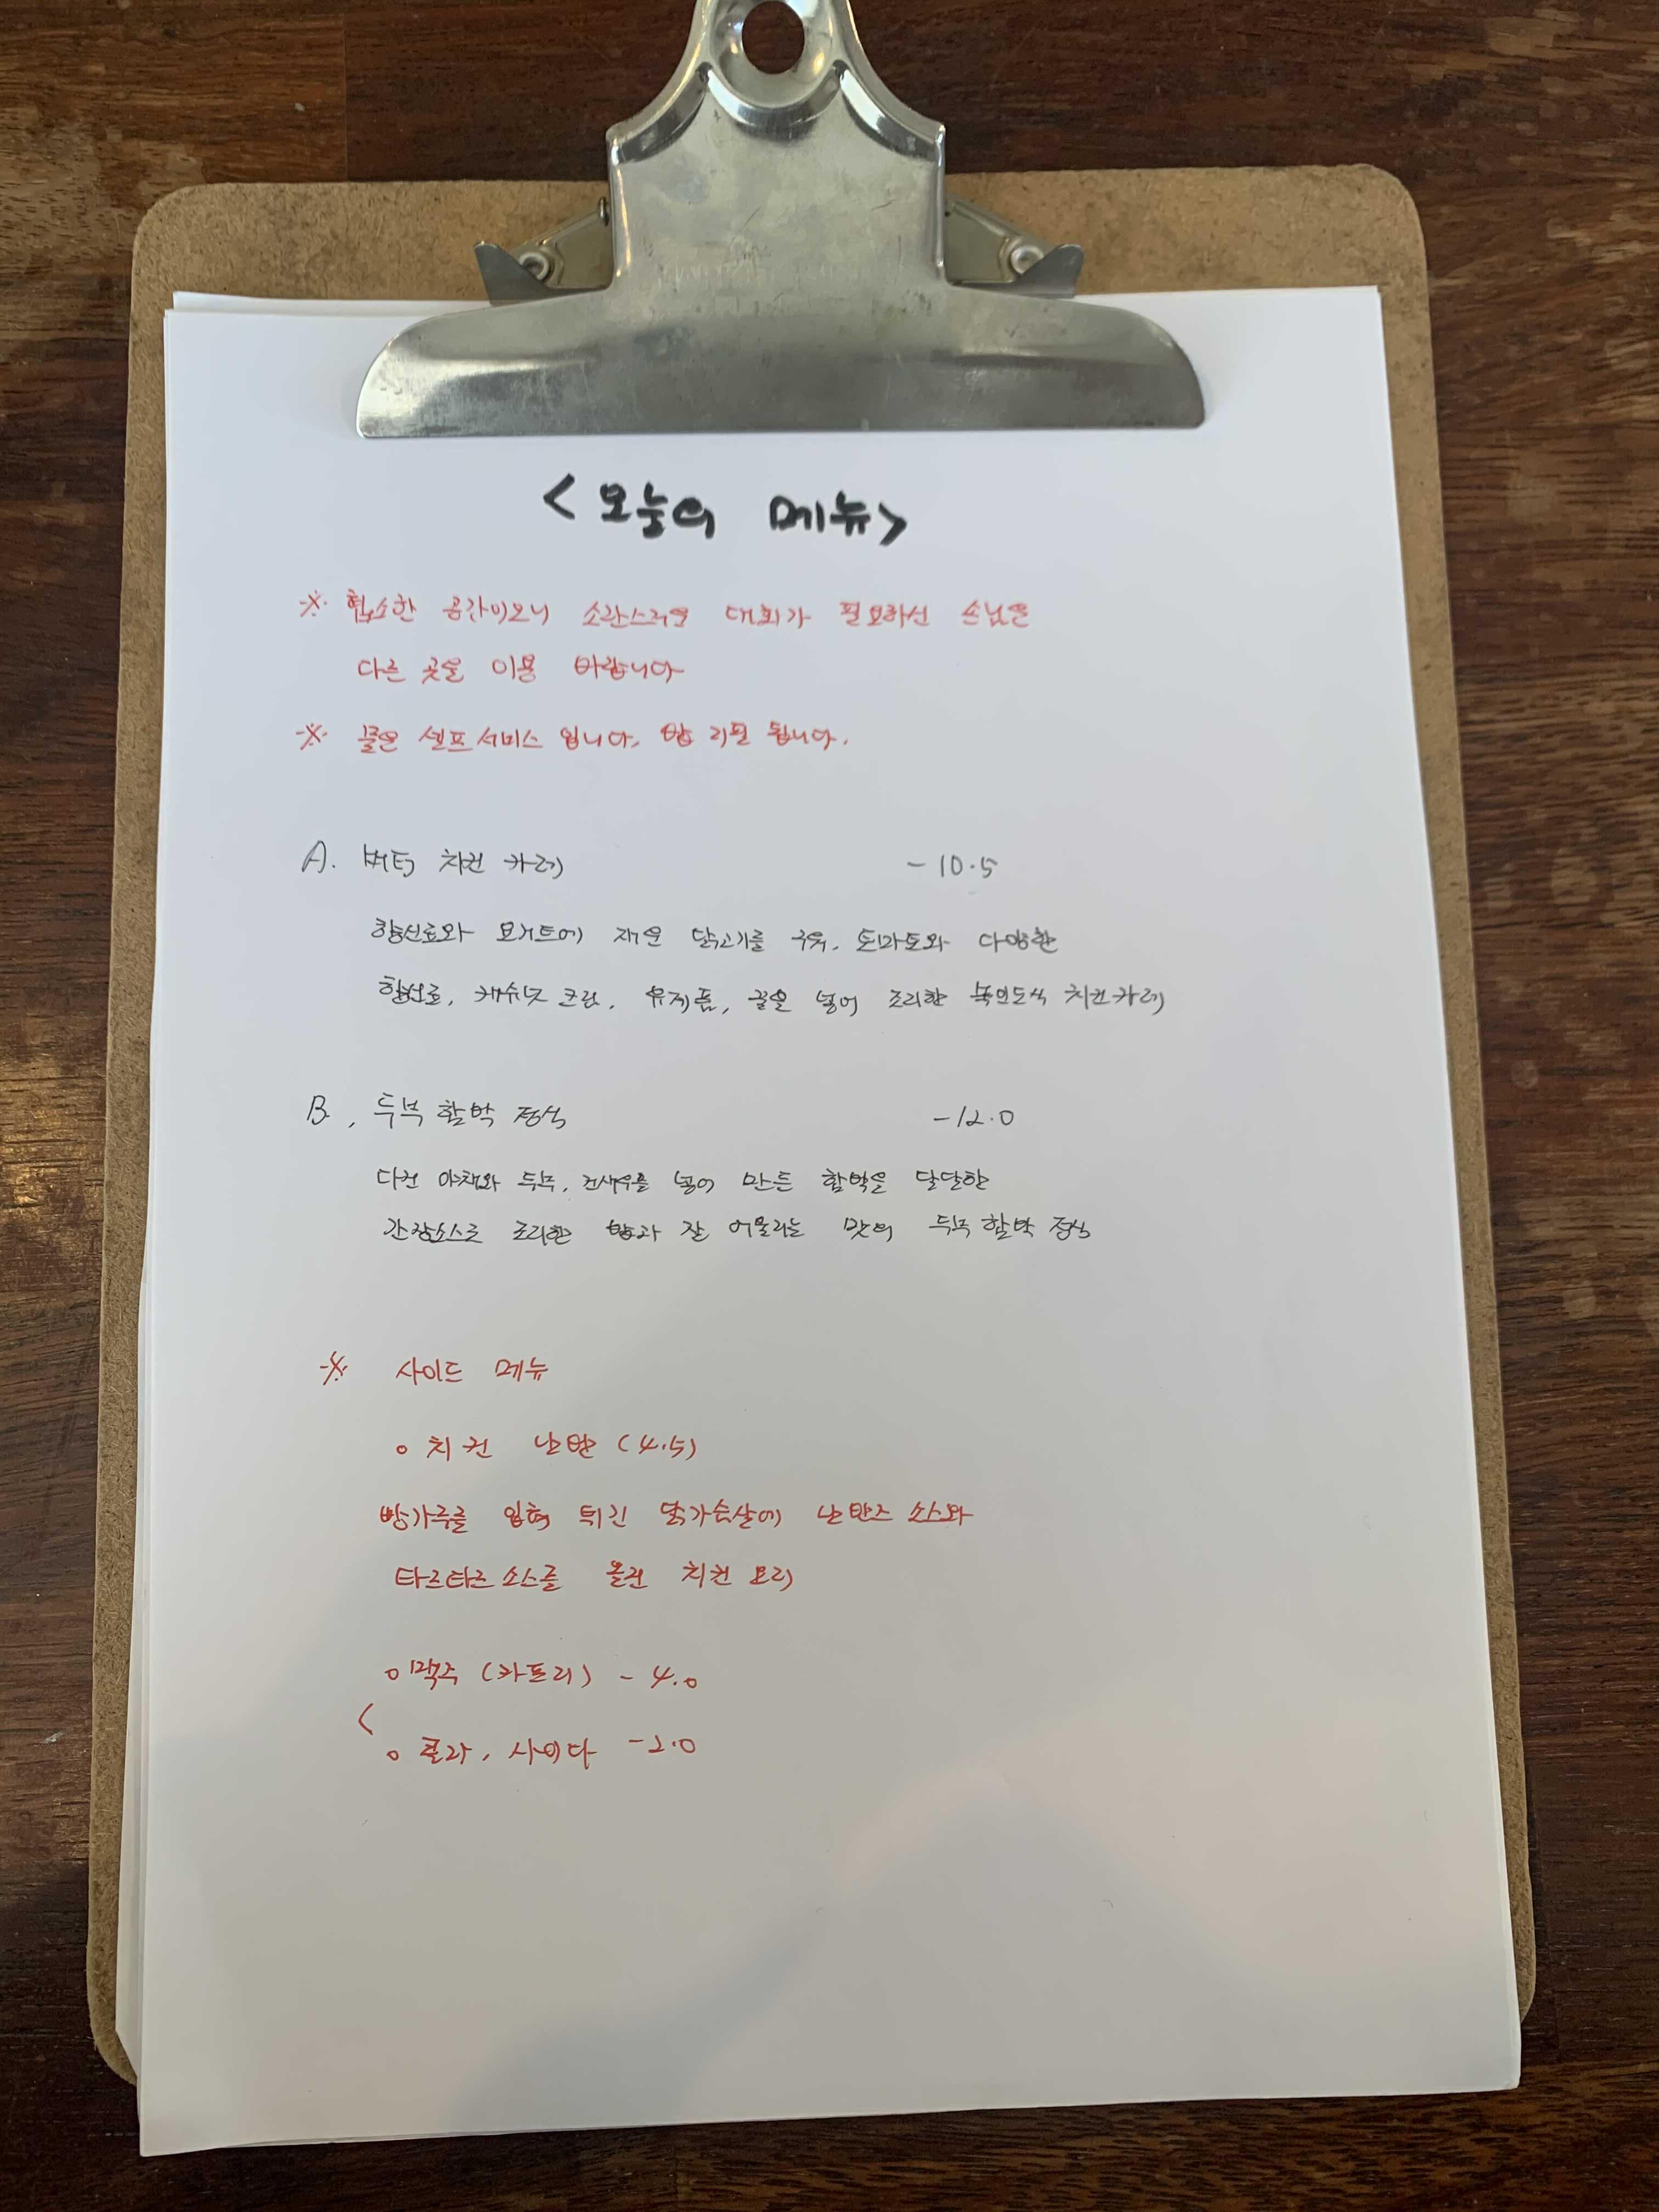 <오늘의 메뉴>
※ 협소한 공간이오니 소란스러운 대화가 필요하신 손님은
다른 곳을 이용 바랍니다
※ 물은 셀프서비스 입니다. 밥 리필 됩니다.
A. 버터 치킨 카레 - 10.5
향신료와 요거트에 재운 닭고기를 구워, 토마토와 다양한
향신료, 캐슈넛 크림, 유제품, 꿀을 넣어 조리한 북인도식 치킨카레
B. 두부 함박 정식 - 12.0
다진 야채와 두부, 건새우를 넣어 만든 함박을 달달한
간장소스로 조리한 밥과 잘 어울리는 맛의 두부 함박 정식
※ 사이드 메뉴
o 치킨 난반 (4.5)
빵가루를 입혀 튀긴 닭가슴살에 난반즈 소스와
타르타르소스를 올린 치킨 요리
o 맥주 (카프리) - 4.0
<
o 콜라, 사이다 - 2.0